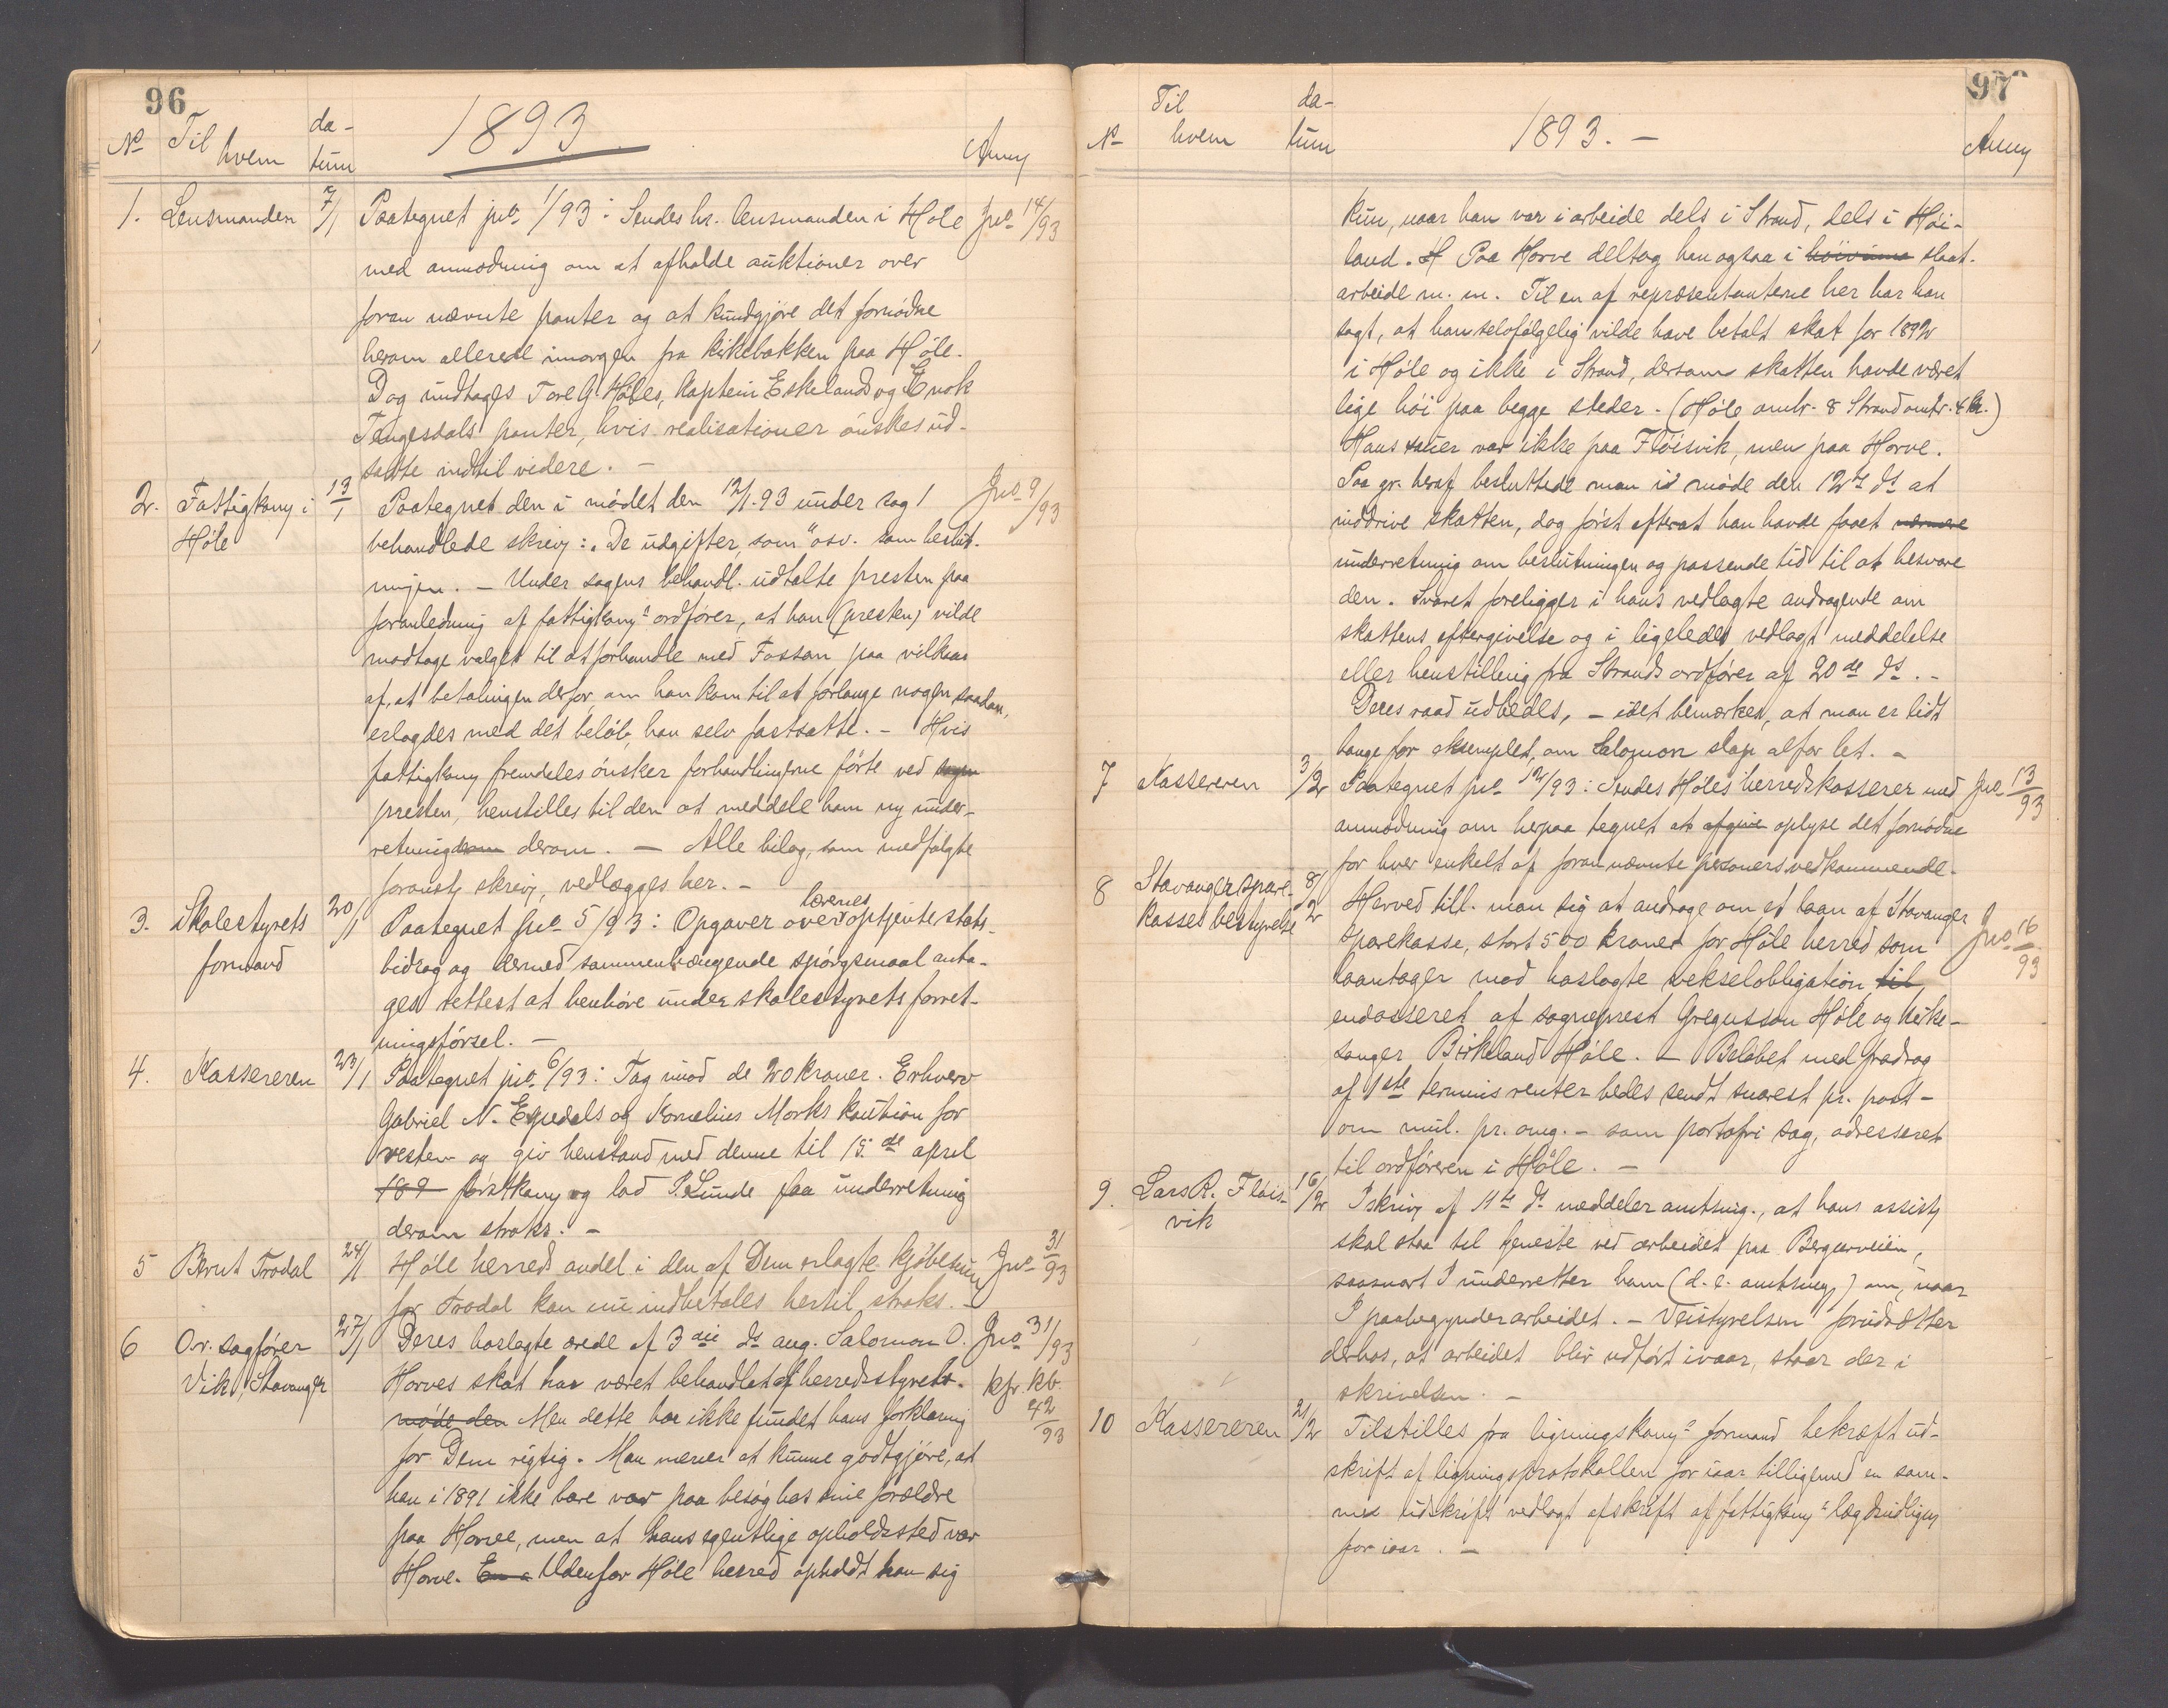 96
No Til hvem da-tum 1893 Anm
1. Lensmanden 7/1 Paategnet jno 1/93: Sendes hr. lensmanden i Höle Jno 14/93
med anmodning om at afholde auktioner over
foran nævnte panter og at kundgjöre det fornödne
herom allerede imorgen fra kirkebakken paa Höle.
Dog undtages Tore G. Höles, kaptein Eskelands og Enok
Tengesdals panter, hvis realisationer önskes ud-
satte indtil videre. –
2. Fattigkom i Höle 13/1 Paategnet den i mödet den 12/1.93 under sag 1 Jno 9/93
behandlede skriv: "De udgifter, som" osv. som beslut-
ningen. – Under sagens behandl. udtalte presten paa
foranledning af fattigkoms ordförer, at han (presten) vilde
modtage valget til at forhandle med Fossan paa vilkaar
af, at betalingen derfor, om han kom til at forlange nogen saadan,
erlagdes med det belöb, han selv fastsatte. – Hvis
fattigkom fremdeles önsker forhandlingerne förte ved sogn
presten, henstilles til den at meddele ham ny under-
retning derom. – Alle bilag, som medfulgte
foranst skriv, vedlægges her. –
3. Skolestyrets formand 20/1 Paategnet Jno 5/93: Opgaver over lærernes optjente stats-
bidrag og dermed sammenhængende spörgsmaal anta-
ges rettest at henhöre under skolestyrets forret-
ningsförsel. –
4. Kassereren 23/1 Paategnet jno 6/93: Tag imod de 20 kroner. Erhverv
Gabriel N. Espedals og Kornelius Morks kaution for
resten og giv henstand med denne til 15de april
189 förstkom og lad P. Lunde faa underretning
derom straks. –
5 Bernt Trodal 24/1 Höle herreds andel i den af Dem erlagte kjöbesum Jno 31/93
for Trodal kan nu indbetales hertil straks. –
6 O.r. sagförer Vik, Stavanger 27/1 Deres hoslagte ærede af 3die ds ang. Salomon O. Jno 31/93
Horves skat har været behandlet af herredsstyrets. kfr. kb. 42/93
möde den Men dette har ikke fundet hans forklaring
for Dem rigtig. Man mener at kunne godtgjöre, at
han i 1891 ikke bare var paa besög hos sine forældre
paa Horve, men at hans egentlige opholdssted var
Horve. Udenfor Höle herred opholdt han sig
97
No Til hvem da-tum 1893. – Anm
kun, naar han var i arbeide dels i Strand, dels i Höi-
land. Paa Horve deltog han ogsaa i slaat-
arbeide m. m. Til en af repræsentanterne her har han
sagt, at han selvfölgelig vilde have betalt skat for 1892
i Höle og ikke i Strand, dersom skatten havde været
lige höi paa begge steder. (Höle omtr. 8 Strand omtr. 4 kr.)
Hans sauer var ikke paa Flöisvik, men paa Horve.
Paa gr. heraf besluttede man i möde den 12te ds at
inddrive skatten, dog först efterat han havde faaet nærmere
underretning om beslutningen og passende tid til at besvare
den. Svaret foreligger i hans vedlagte andragende om
skattens eftergivelse og i ligeledes vedlagt meddelelse
eller henstilling fra Strands ordförer af 20de ds. –
Deres raad udbedes, – idet bemærkes, at man er lidt
bange for eksemplet, om Salomon slap alfor let. –
7 Kassereren 3/2 Paategnet jno 12/93: Sendes Höles herredskasserer med Jno 13/93
anmodning om herpaa tegnet at afgive oplyse det fornödne
for hver enkelt af foran nævnte personers vedkommende.
8 Stavanger spare-kasses bestyrelse 8/2 Herved till. man sig at andrage om et laan af Stavanger
sparekasse, stort 500 kroner for Höle herred som Jno 16/93
laantager mod hoslagte vekselobligation, til
endosseret af sogneprest Gregusson Höle og kirke-
sanger Birkeland Höle. – Belöbet med fradrag
af 1ste termins renter bedes sendt snarest pr. post –
om mul. pr. omg. – som portofri sag, adresseret
til ordföreren i Höle. –
9. Lars R. Flöis-vik 16/2 I skriv af 11te ds meddeler amtsing., at hans assist
skal staa til tjeneste ved arbeidet paa Bergeveien,
saasnart I underretter ham (d. e. amtsing) om, naar
I paabegynder arbeidet. – Veistyrelsen forudsætter
derhos, at arbeidet blir udfört ivaar, staar der i
skrivelsen. –
10 Kassereren 21/2 Tilstilles fra ligningskoms formand bekræft ud-
skrift af ligningsprotokollen for iaar tilligemed en sam-
me udskrift vedlagt afskrift af fattigkoms lægdsudligng
for iaar. –